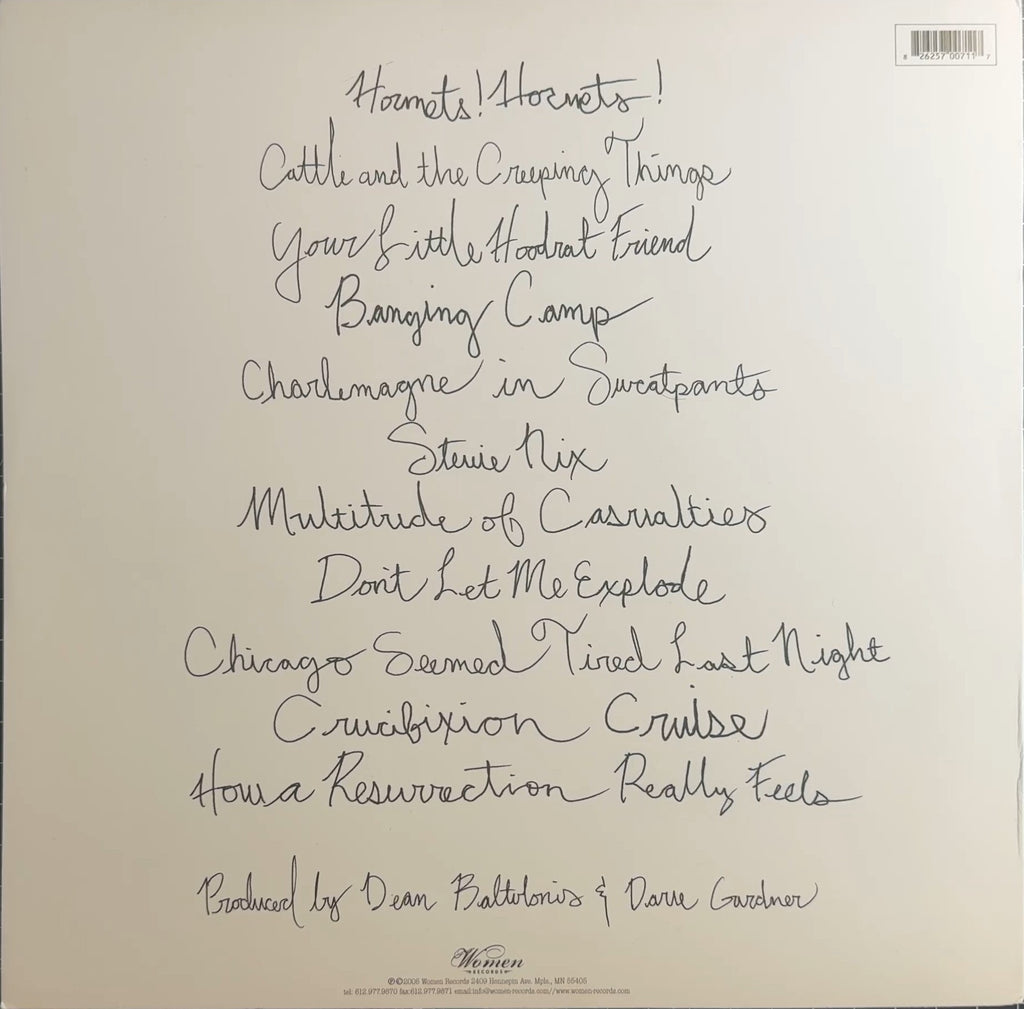 8 26257 00711 7
Hornets! Hornets!
Cattle and the Creeping Things
Your Little Hoodrat Friend
Banging Camp
Charlemagne in Sweatpants
Stevie Nix
Multitude of Casualties
Don't Let Me Explode
Chicago Seemed Tired Last Night
Crucifixion Cruise
How a Resurrection Really Feels
Produced by Dean Baltulonis & Dave Gardner
Women
RECORDS
℗©2005 Women Records 2409 Hennepin Ave. Mpls., MN 55405
tel: 612.977.9870 fax:612.977.9871 email:info@women-records.com//www.women-records.com